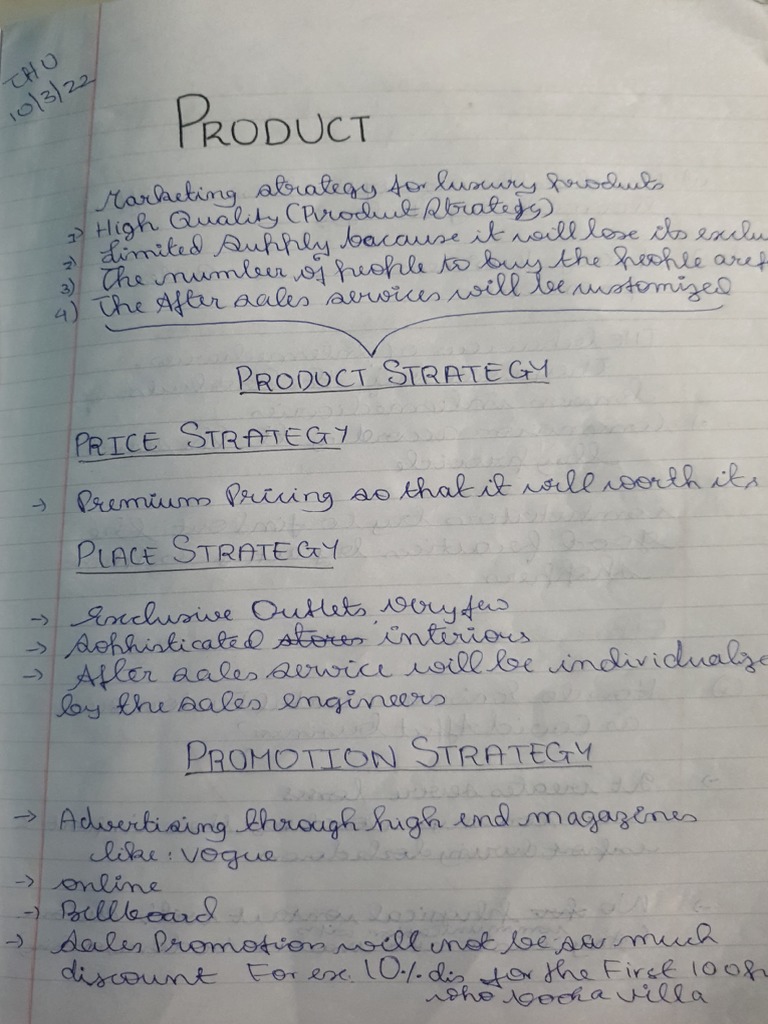 THU
10/3/22
PRODUCT
Marketing strategy for luxury products
1) High Quality (Product Strategy)
2) Limited Supply bacause it will lose its exclu
3) The number of people to buy the people are f
4) The After sales services will be customized
PRODUCT STRATEGY
PRICE STRATEGY
→ Premium Pricing so that it will worth its
PLACE STRATEGY
→ Exclusive Outlets, very few
→ Sophisticated stores interiors
→ After sales service will be individualize
by the sales engineers
PROMOTION STRATEGY
→ Advertising through high end magazines
like : VOGUE
→ online
→ Billboard
→ Sales Promotion will not be so much
discount For ex. 10% dis for the First 100 p
who book a villa